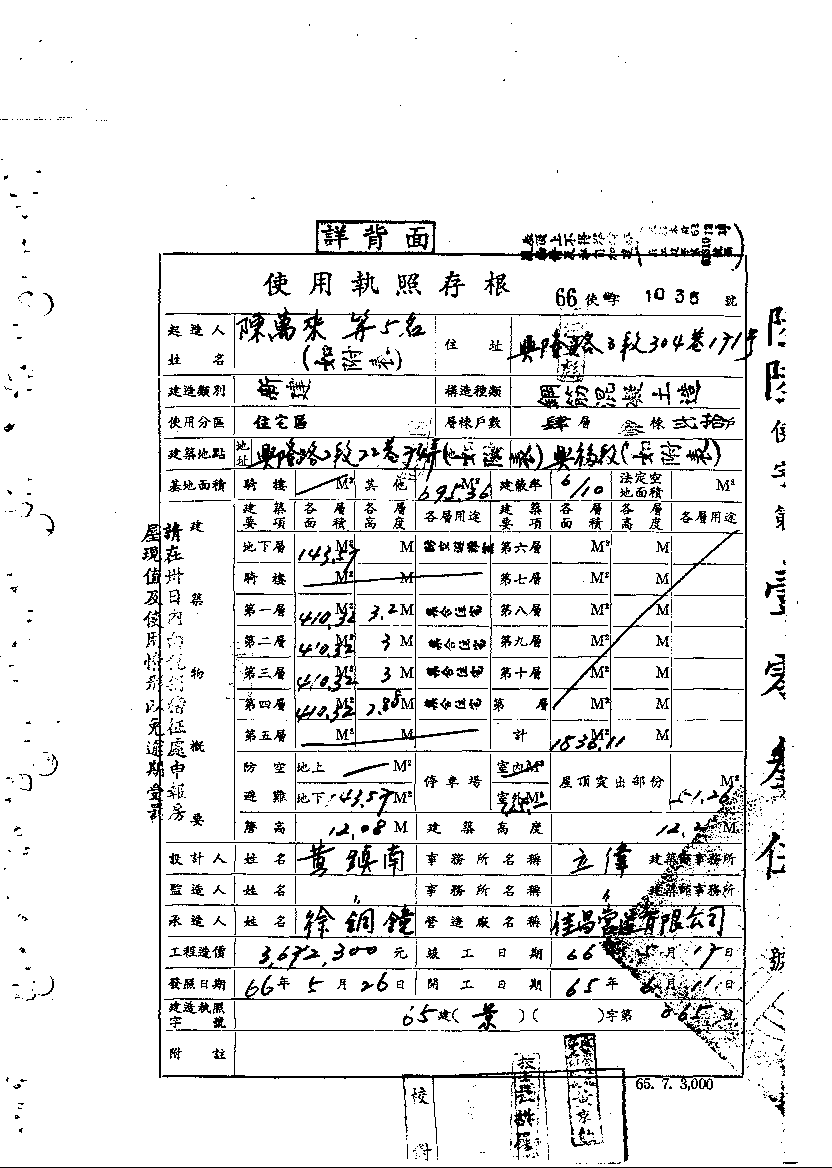 詳背面
使用執照存根
66使字1035號
起造人姓名 陳萬來 等5名 (如附表)
住址 興隆路3段304巷171号
建造類別 新建 構造種類 鋼筋混凝土造
使用分區 住宅區 層棟戶數 肆層 棟 弍拾
建築地點 地址 興隆路2段22巷 興福段(如附表)
基地面積 騎樓 M² 其他 695.36 M² 建蔽率 6/10 法定空地面積 M²
建築物概要
建築要項 各層面積 各層高度 各層用途 建築要項 各層面積 各層高度 各層用途
地下層 143.57 M² M 第六層 M² M
騎樓 M² M 第七層 M² M
第一層 410.32 M² 3.2 M 集合住宅 第八層 M² M
第二層 410.32 M² 3 M 集合住宅 第九層 M² M
第三層 410.32 M² 3 M 集合住宅 第十層 M² M
第四層 410.32 M² 2.88 M 集合住宅 第 層 M² M
第五層 M² M 計 1836.11 M² M
防空避難 地上 M² 停車場 室內 M² 屋頂突出部份 51.26 M²
地下 143.57 M² 室外 M²
簷高 12.08 M 建築高度 12.2 M
設計人 姓名 黃鎮南 事務所名稱 立偉 建築師事務所
監造人 姓名 〃 事務所名稱 〃 建築師事務所
承造人 姓名 徐銅鐘 營造廠名稱 佳昌營造有限公司
工程造價 3,672,300元 竣工日期 66 5月17日
發照日期 66年5月26日 開工日期 65年6月11日
建造執照字號 65建(景)( )字第 865 號
附註
請在卅日內向稅捐稽征處申報房
屋現值及使用情形以免逾期受罰
65. 7. 3,000
校對
使字第
壹零叁伍
號